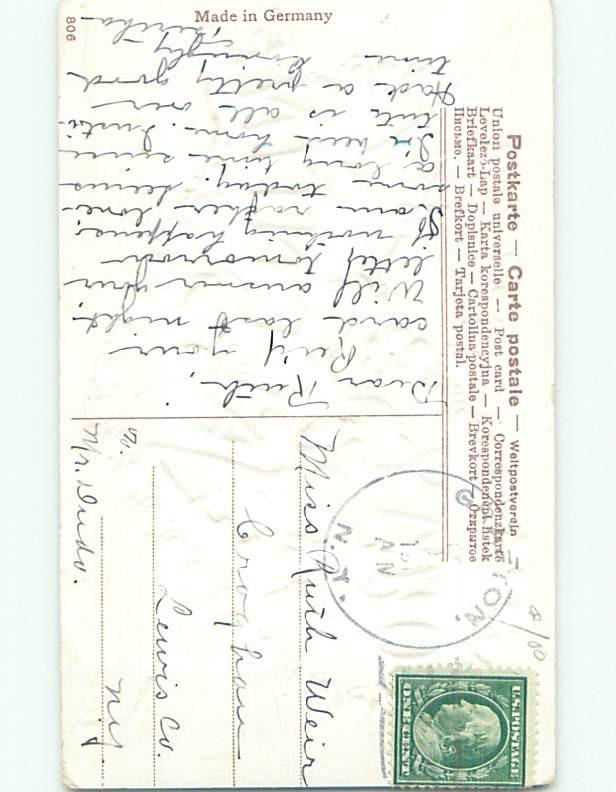 Made in Germany
806
Postkarte — Carte postale — Weltpostverein
Union postale universelle — Post card — Correspondenzkarte
Levelező-Lap — Karta korespondencyjna — Korespondenční lístek
Briefkaart — Dopisnice — Cartolina postale — Brevkort — Открытое
Письмо. — Brefkort — Tarjeta postal.
Dear Ruth,
Rec'd your
card last night
Will answer your
letter tomorrow
if nothing happens.
I am rather lone-
some today. Seems
a long time since
I've been home. Insti-
tute is all over
Had a pretty good
time
Lovingly
Miss Ruth Weir
Croghan
Lewis Co.
N.Y.
Mr. Dudo.
N.Y.
U.S. POSTAGE
ONE CENT
8/00